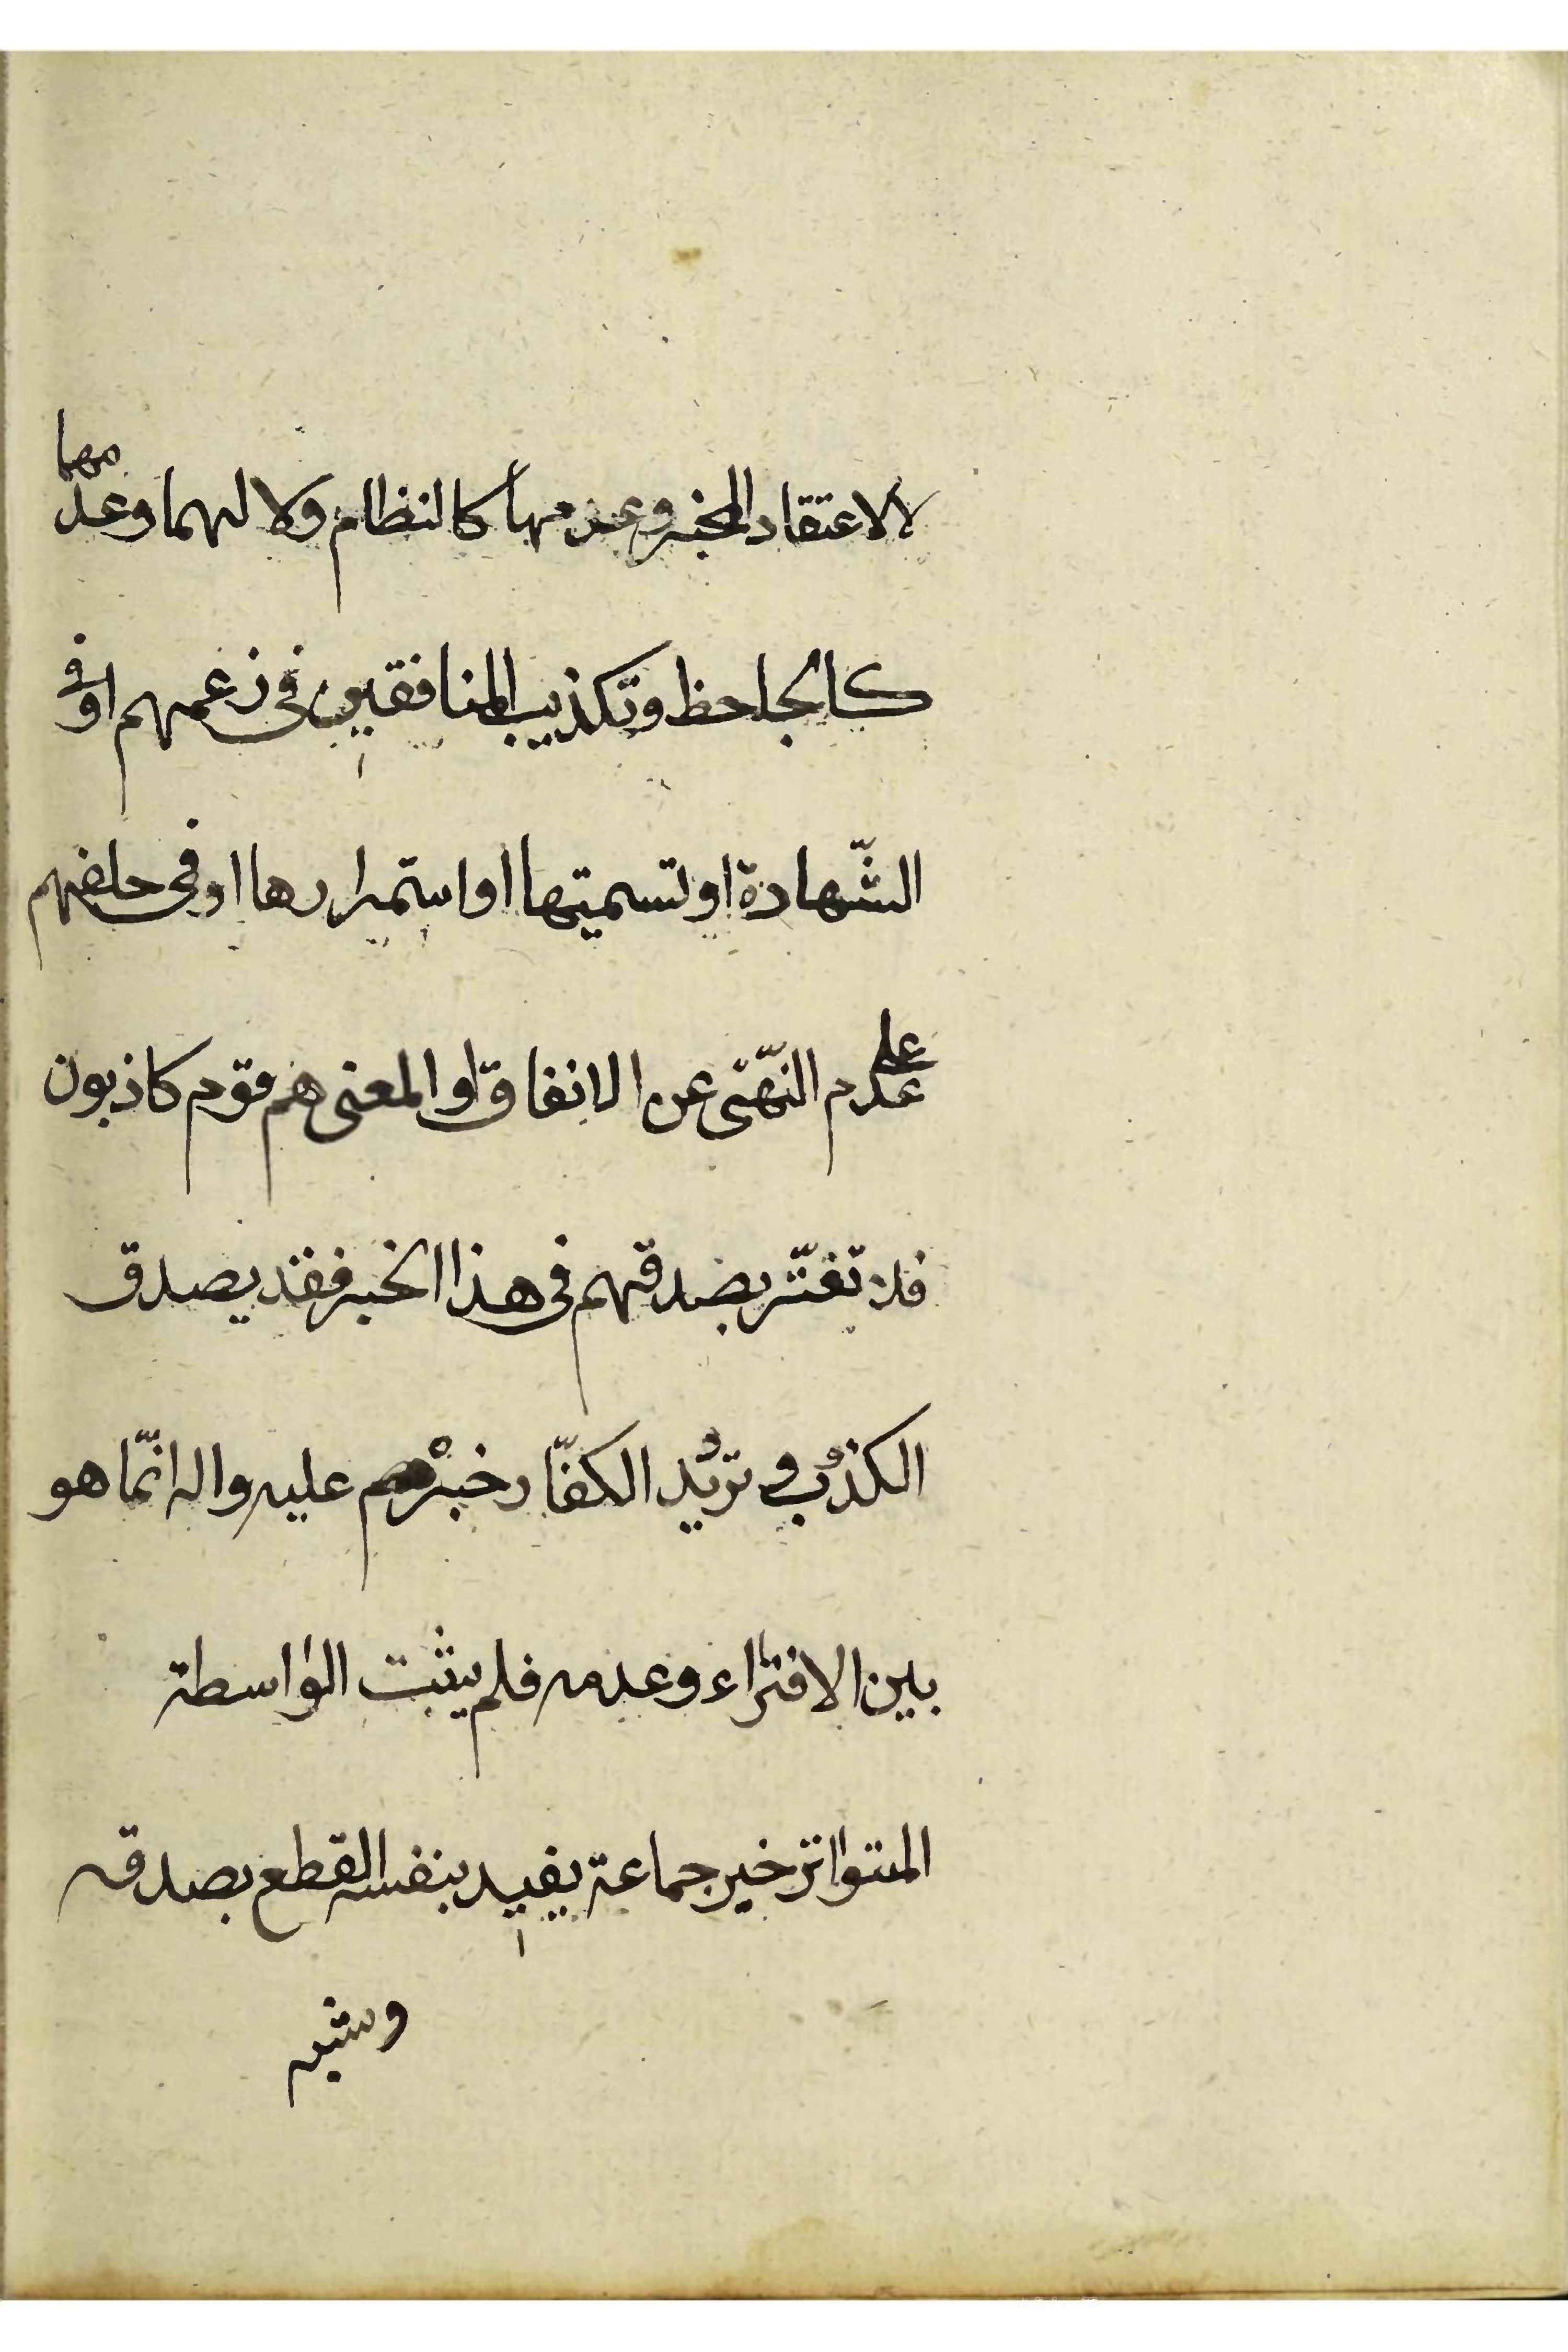 لا لاعتقاد المخبر وعدمها كالنظام ولا لهما وعدمهما
كالجاحظ وتكذيب المنافقين في زعمهم او في
الشّهادة او تسميتها او استمرارها او في حلفهم
على عدم النّهى عن الانفاق او المعنى هم قوم كاذبون
فلا تغتّر بصدقهم في هذا الخبر فقد يصدق
الكذوب وترديد الكفّار خبره عليه واله انّما هو
بين الافتراء وعدمه فلم يثبت الواسطة
المتواتر خبر جماعة يفيد بنفسه القطع بصدقه
وشبه